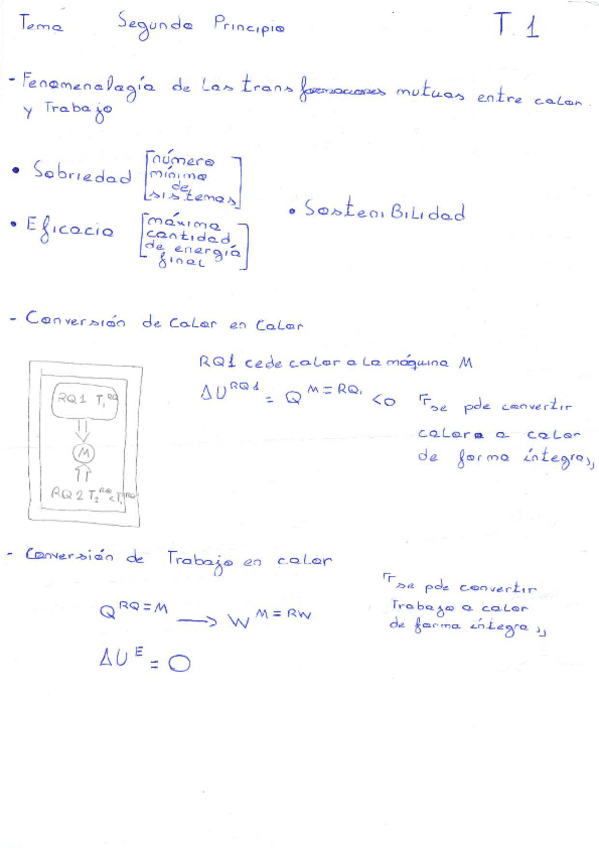 Tema Segundo Principio T.1
- Fenomenalagía de las transformaciones mutuas entre calor
y Trabajo
• Sobriedad [número
mínimo
de
sistemas]
• Sostenibilidad
• Eficacia [máxima
cantidad
de energía
final]
- Conversión de Calor en Calor
RQ1 cede calor a la máquina M
ΔU^RQ1 = Q^M=RQ1 <0
"se pde convertir
calor a calor
de forma íntegra"
RQ1 T1^RQ
M
RQ2 T2^RQ < T1^RQ
- Conversión de Trabajo en calor
"se pde convertir
Trabajo a calor
de forma íntegra"
Q^RQ=M → W^M=RW
ΔU^E = 0